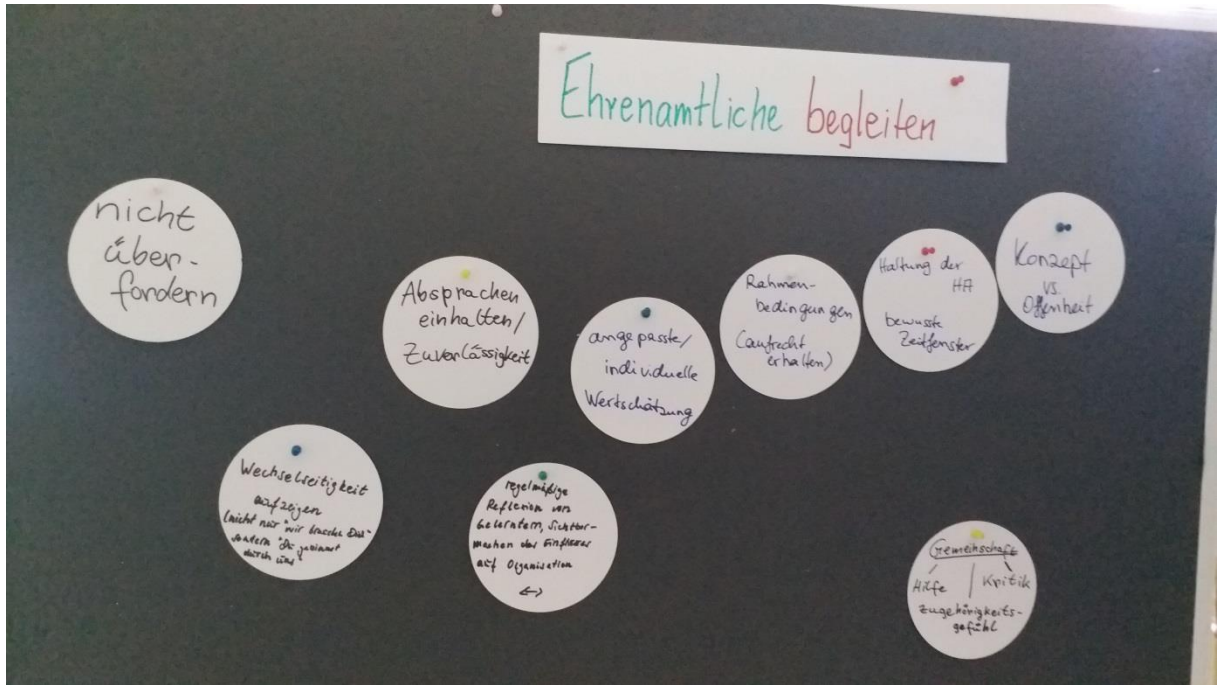 Ehrenamtliche begleiten
nicht
über-
fordern
Absprachen
einhalten/
Zuverlässigkeit
angepasste/
individuelle
Wertschätzung
Rahmen-
bedingungen
(aufrecht
erhalten)
Haltung der
HA
bewusste
Zeitfenster
Konzept
vs.
Offenheit
Wechselseitigkeit
aufzeigen
(nicht nur "wir brauche Dich"
sondern "Du gewinnst
durch uns"
regelmäßige
Reflexion von
Gelerntem, Sichtbar-
machen des Einflusses
auf Organisation
<->
Gemeinschaft
Hilfe | Kritik
Zugehörigkeits-
gefühl